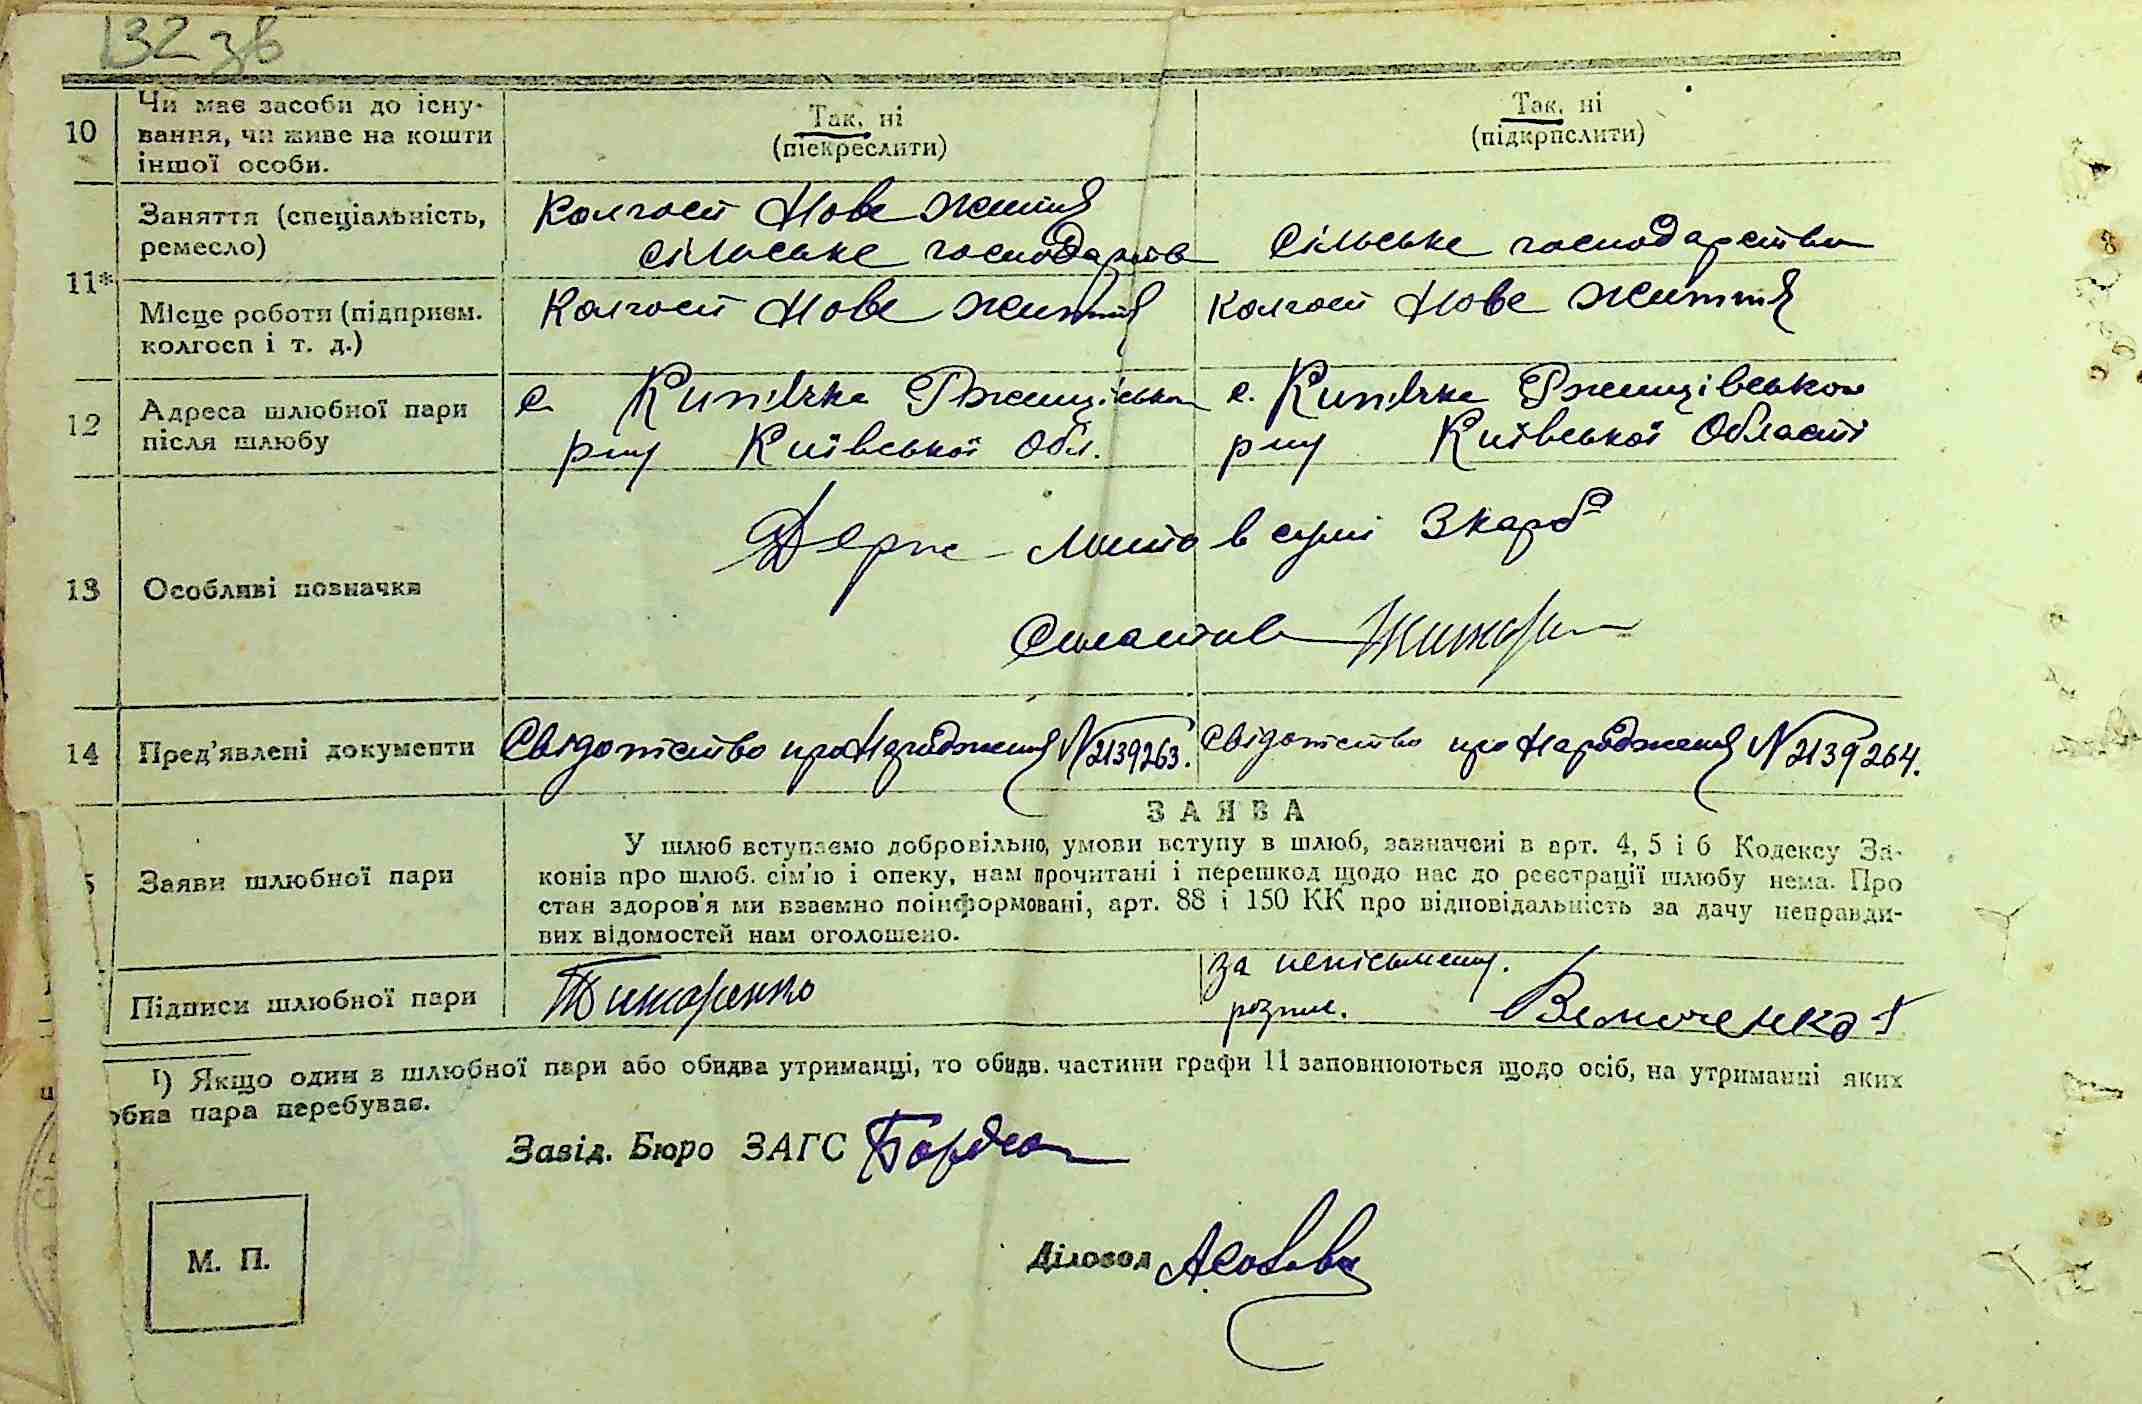 132 зв
10
Чи має засоби до існу-
вання, чи живе на кошти
іншої особи.
Так, ні
(піскреслити)
Так, ні
(підкрпслити)
11*
Заняття (спеціальність,
ремесло)
Колгосп Нове життя
сільське господарств
Сільське господарство
Місце роботи (підприєм.
колгосп і т. д.)
Колгосп Нове життя
Колгосп Нове життя
12
Адреса шлюбної пари
після шлюбу
с.
р-ну Київської Обл.
с.
р-ну Київської Області
13
Особливі позначки
Держ мито в сумі 3 карб
Сплатив
14
Пред'явлені документи
Свідотство про Народження N 2139263.
Свідотство про Народження N 2139264.
5
Заяви шлюбної пари
ЗАЯВА
У шлюб вступаємо добровільно, умови вступу в шлюб, зазначені в арт. 4, 5 і 6 Кодексу За-
конів про шлюб. сім'ю і опеку, нам прочитані і перешкод щодо нас до реєстрації шлюбу нема. Про
стан здоров'я ми взаємно поінформовані, арт. 88 і 150 КК про відповідальність за дачу неправди-
вих відомостей нам оголошено.
Підписи шлюбної пари
за неписьмену.
розпис.
¹) Якщо один з шлюбної пари або обидва утриманці, то обидв. частини графи 11 заповнюються щодо осіб, на утриманні яких
обна пара перебуває.
Завід. Бюро ЗАГС
Діловод
М. П.